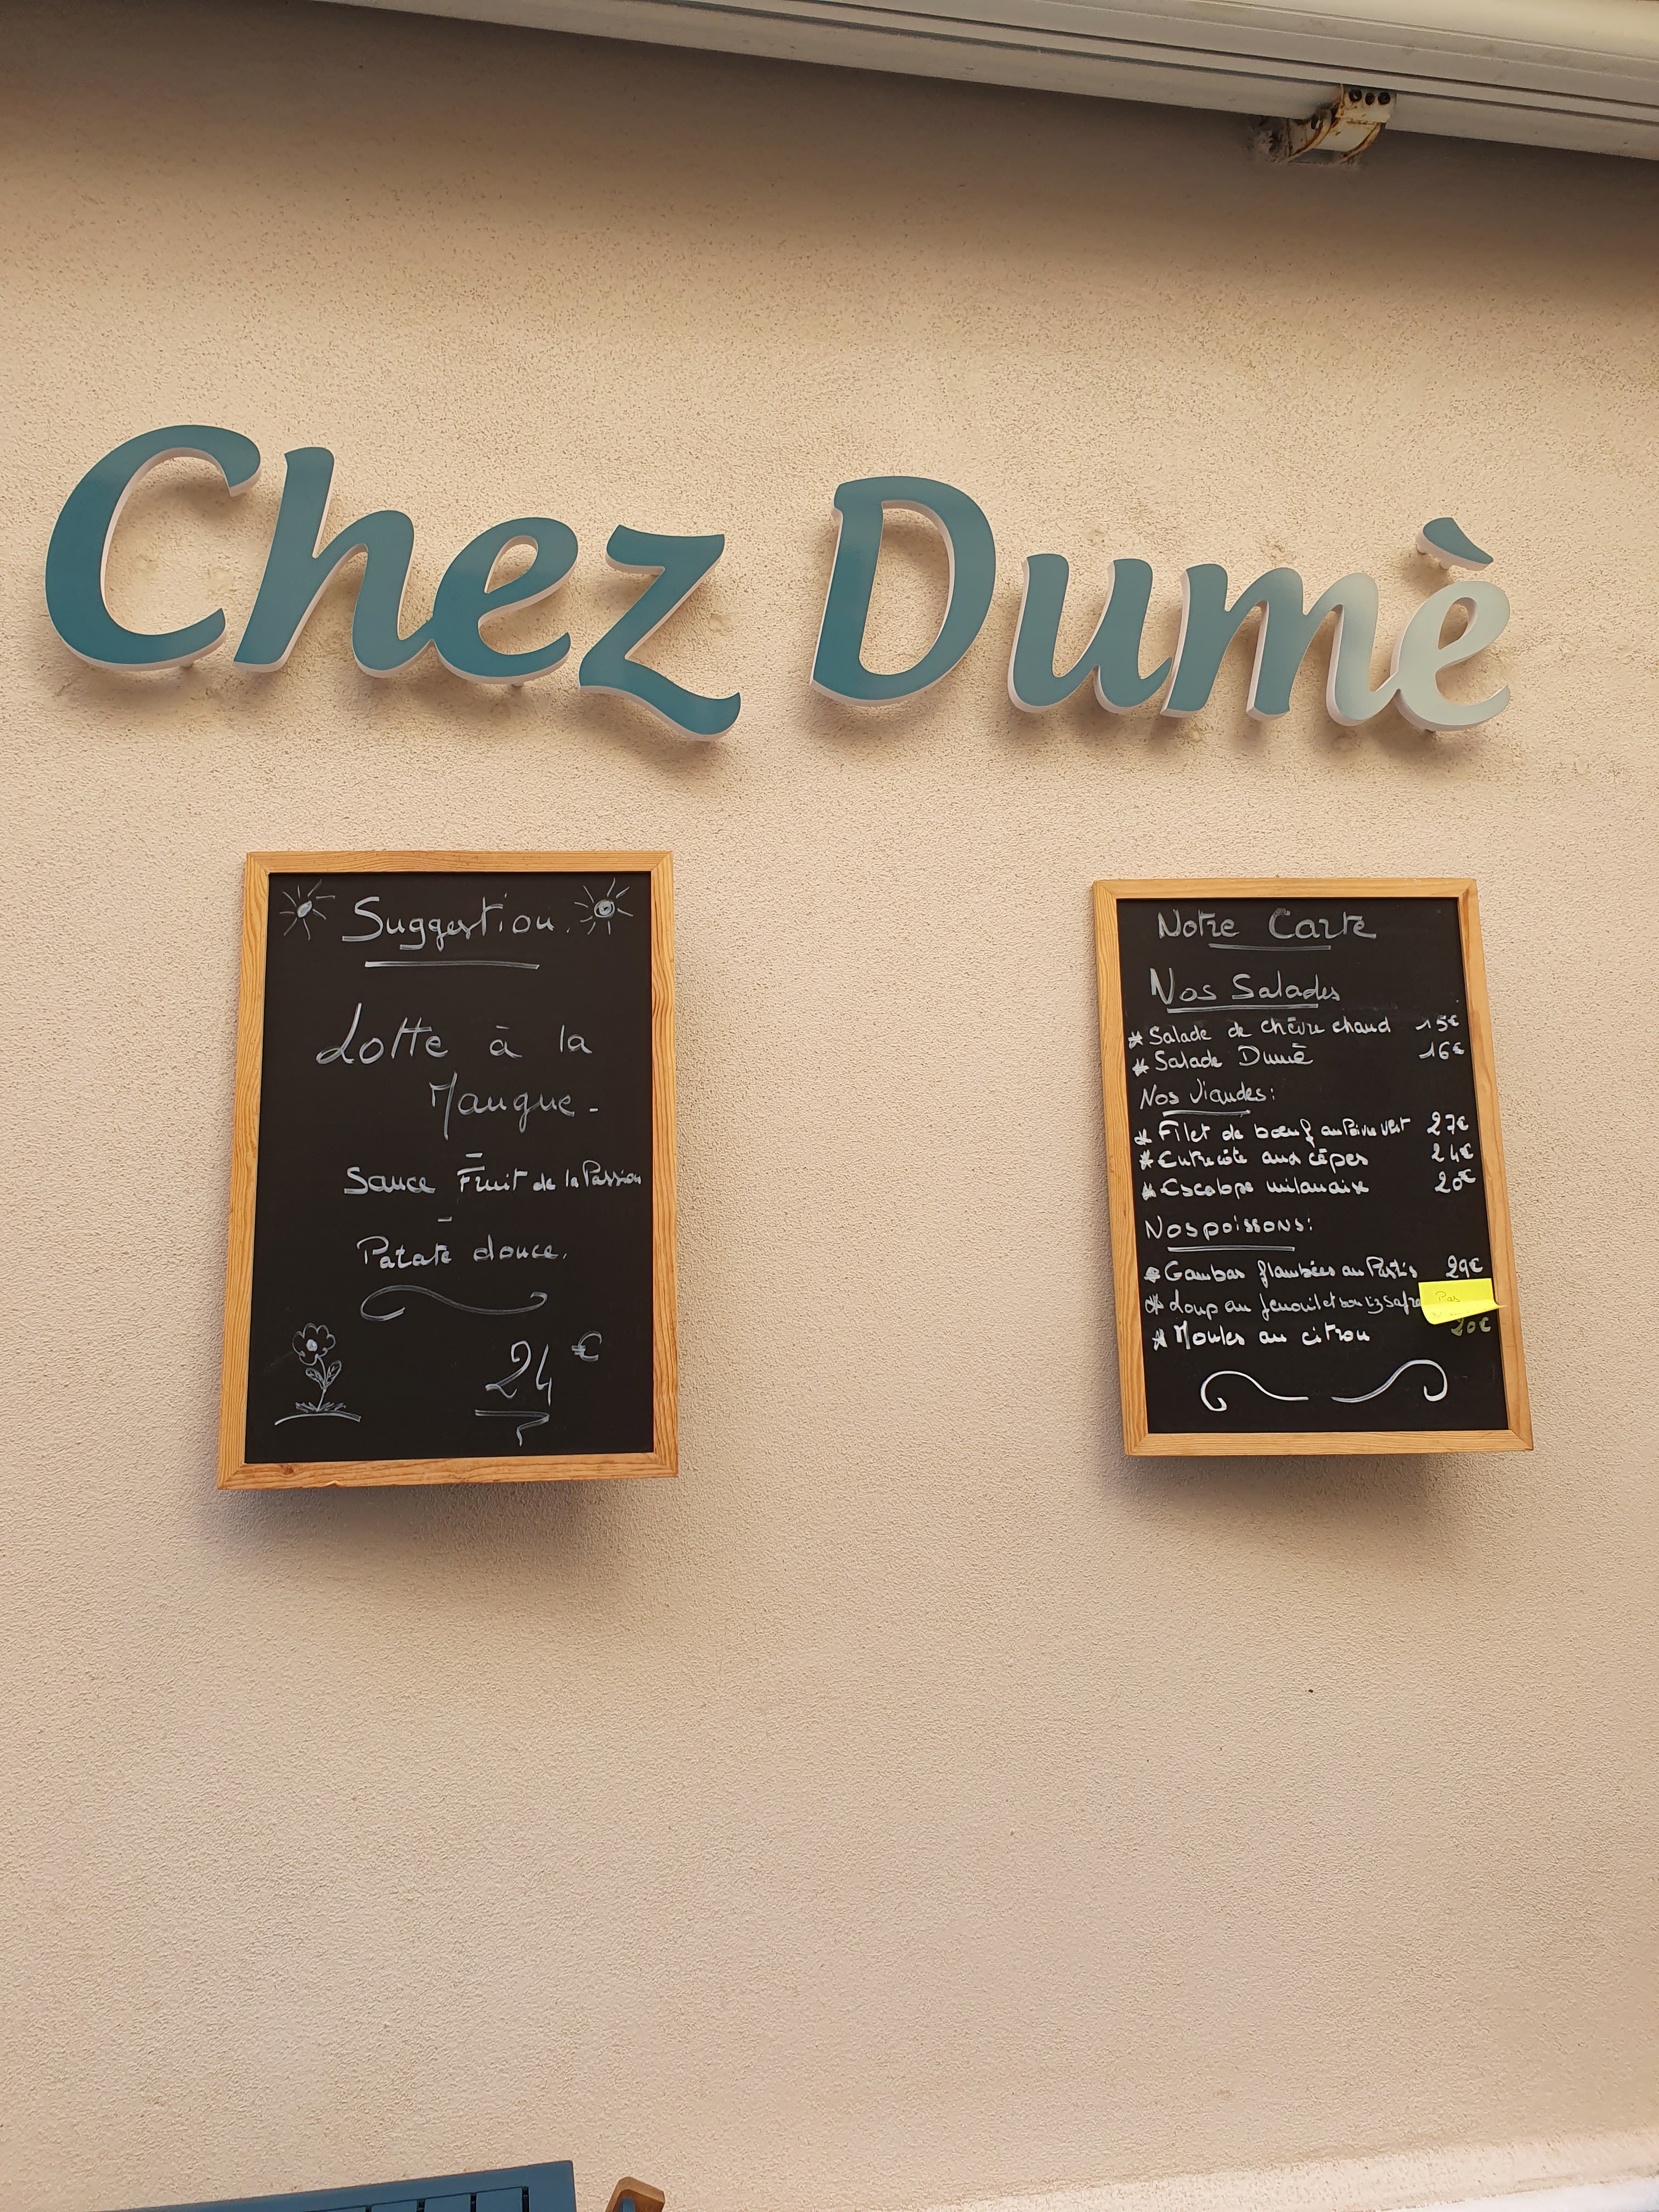 Chez Dumè
Suggestion.
Lotte à la
Mangue.
Sauce Fruit de la Passion
Patate douce.
24€
Notre Carte
Nos Salades
* Salade de chèvre chaud 15€
* Salade Dumè 16€
Nos Viandes:
* Filet de bœuf au Poivre vert 27€
* Entrecôte aux cèpes 24€
* Escalope milanaise 20€
Nos poissons:
* Gambas flambées au Pastis 29€
* Loup au fenouil et son riz Pas
* Moules au citron 20€